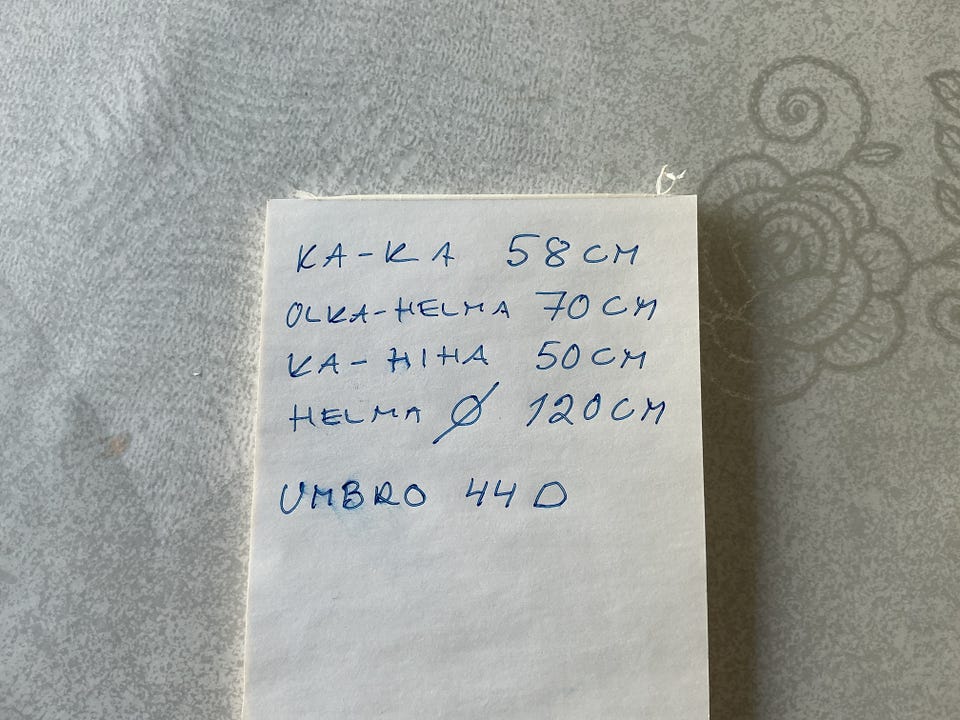 KA-KA 58CM
OLKA-HELMA 70CM
KA-HIHA 50CM
HELMA Ø 120CM
UMBRO 44 D